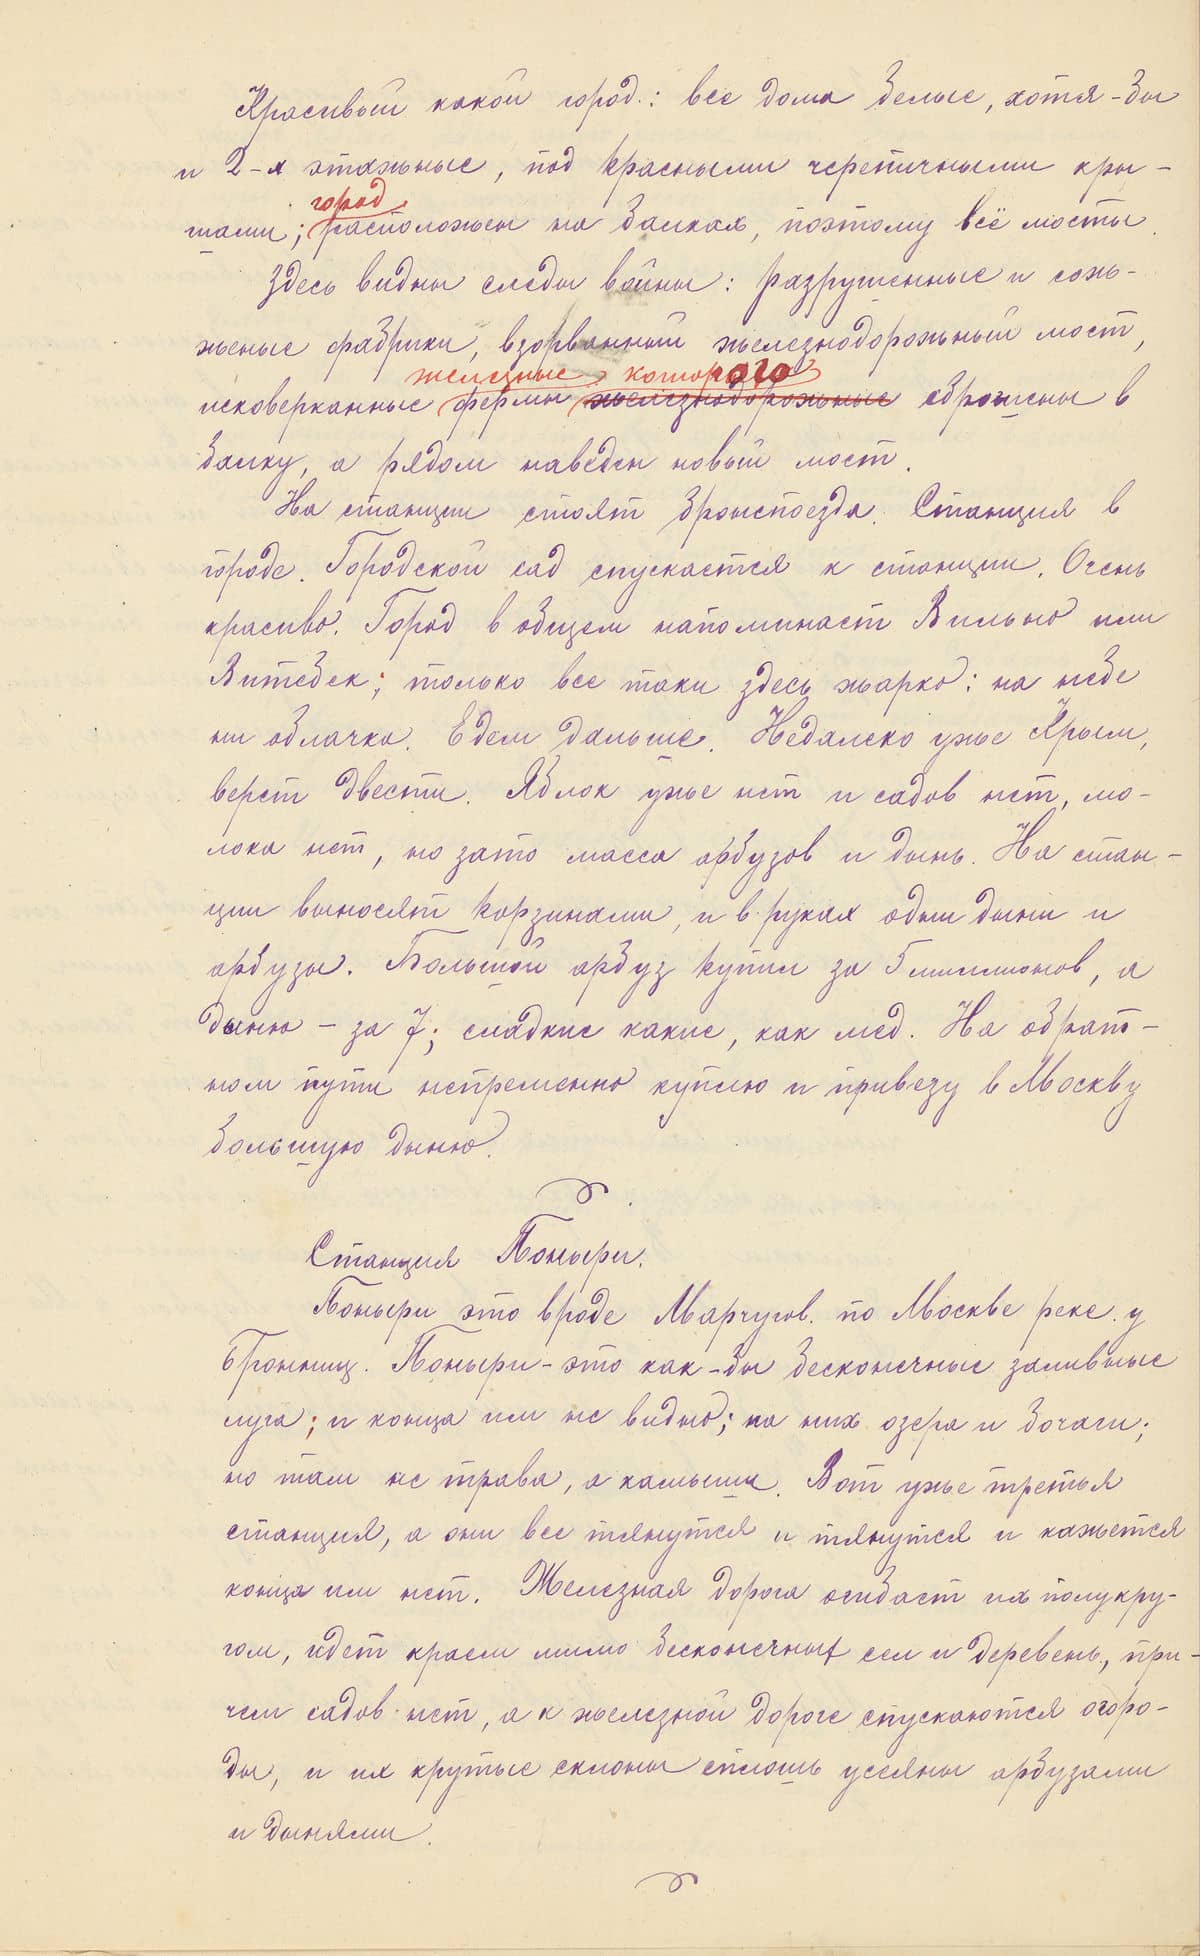 Красивый какой город: все дома белые, хотя-бы
и 2-х этажные, под красными черепичными кры-
город
шами; расположен на балках, поэтому всё мосты.
Здесь видны следы войны: разрушенные и сож-
женые фабрики, взорванный железнодорожный мост,
железные которого
исковерканные фермы железнодорожные сброшены в
балку, а рядом наведен новый мост.
На станции стоят бронепоезда. Станция в
городе. Городской сад спускается к станции. Очень
красиво. Город в общем напоминает Вильно или
Витебск; только все таки здесь жарко: на небе
ни облачка. Едем дальше. Недалеко уже Крым,
верст двести. Яблок уже нет и садов нет, мо-
лока нет, но зато масса арбузов и дынь. На стан-
ции выносят корзинами, и в руках одни дыни и
арбузы. Большой арбуз купил за 5 миллионов, а
дыню - за 7; сладкие какие, как мед. На обрат-
ном пути непременно куплю и привезу в Москву
большую дыню.
Станция Поныри.
Поныри это вроде Марчугов. по Москве реке. у
Бронниц. Поныри - это как-бы бесконечные заливные
луга; и конца им не видно; на них озера и бочаги;
но там не трава, а камыши. Вот уже третья
станция, а они все тянутся и тянутся и кажется
конца им нет. Железная дорога огибает их полукру-
гом, идет краем мимо бесконечных сел и деревень, при-
чем садов нет, а к железной дороге спускаются огоро-
ды, и их крутые склоны сплошь усеяны арбузами
и дынями.